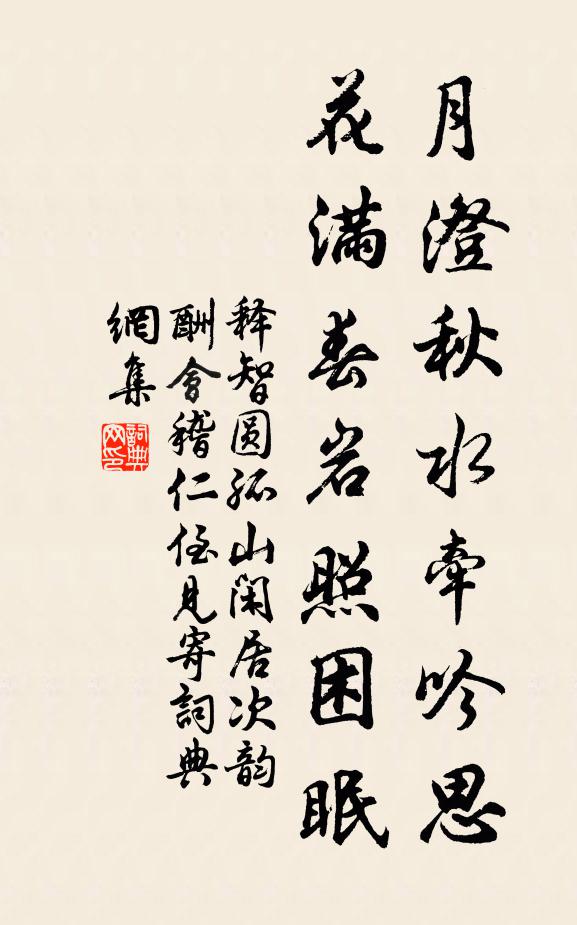 月澄秋水牵吟思
花满春岩照困眠
释智圆孤山闲居次韵
酬会稽仁侄见寄词典
网集
詞典网印